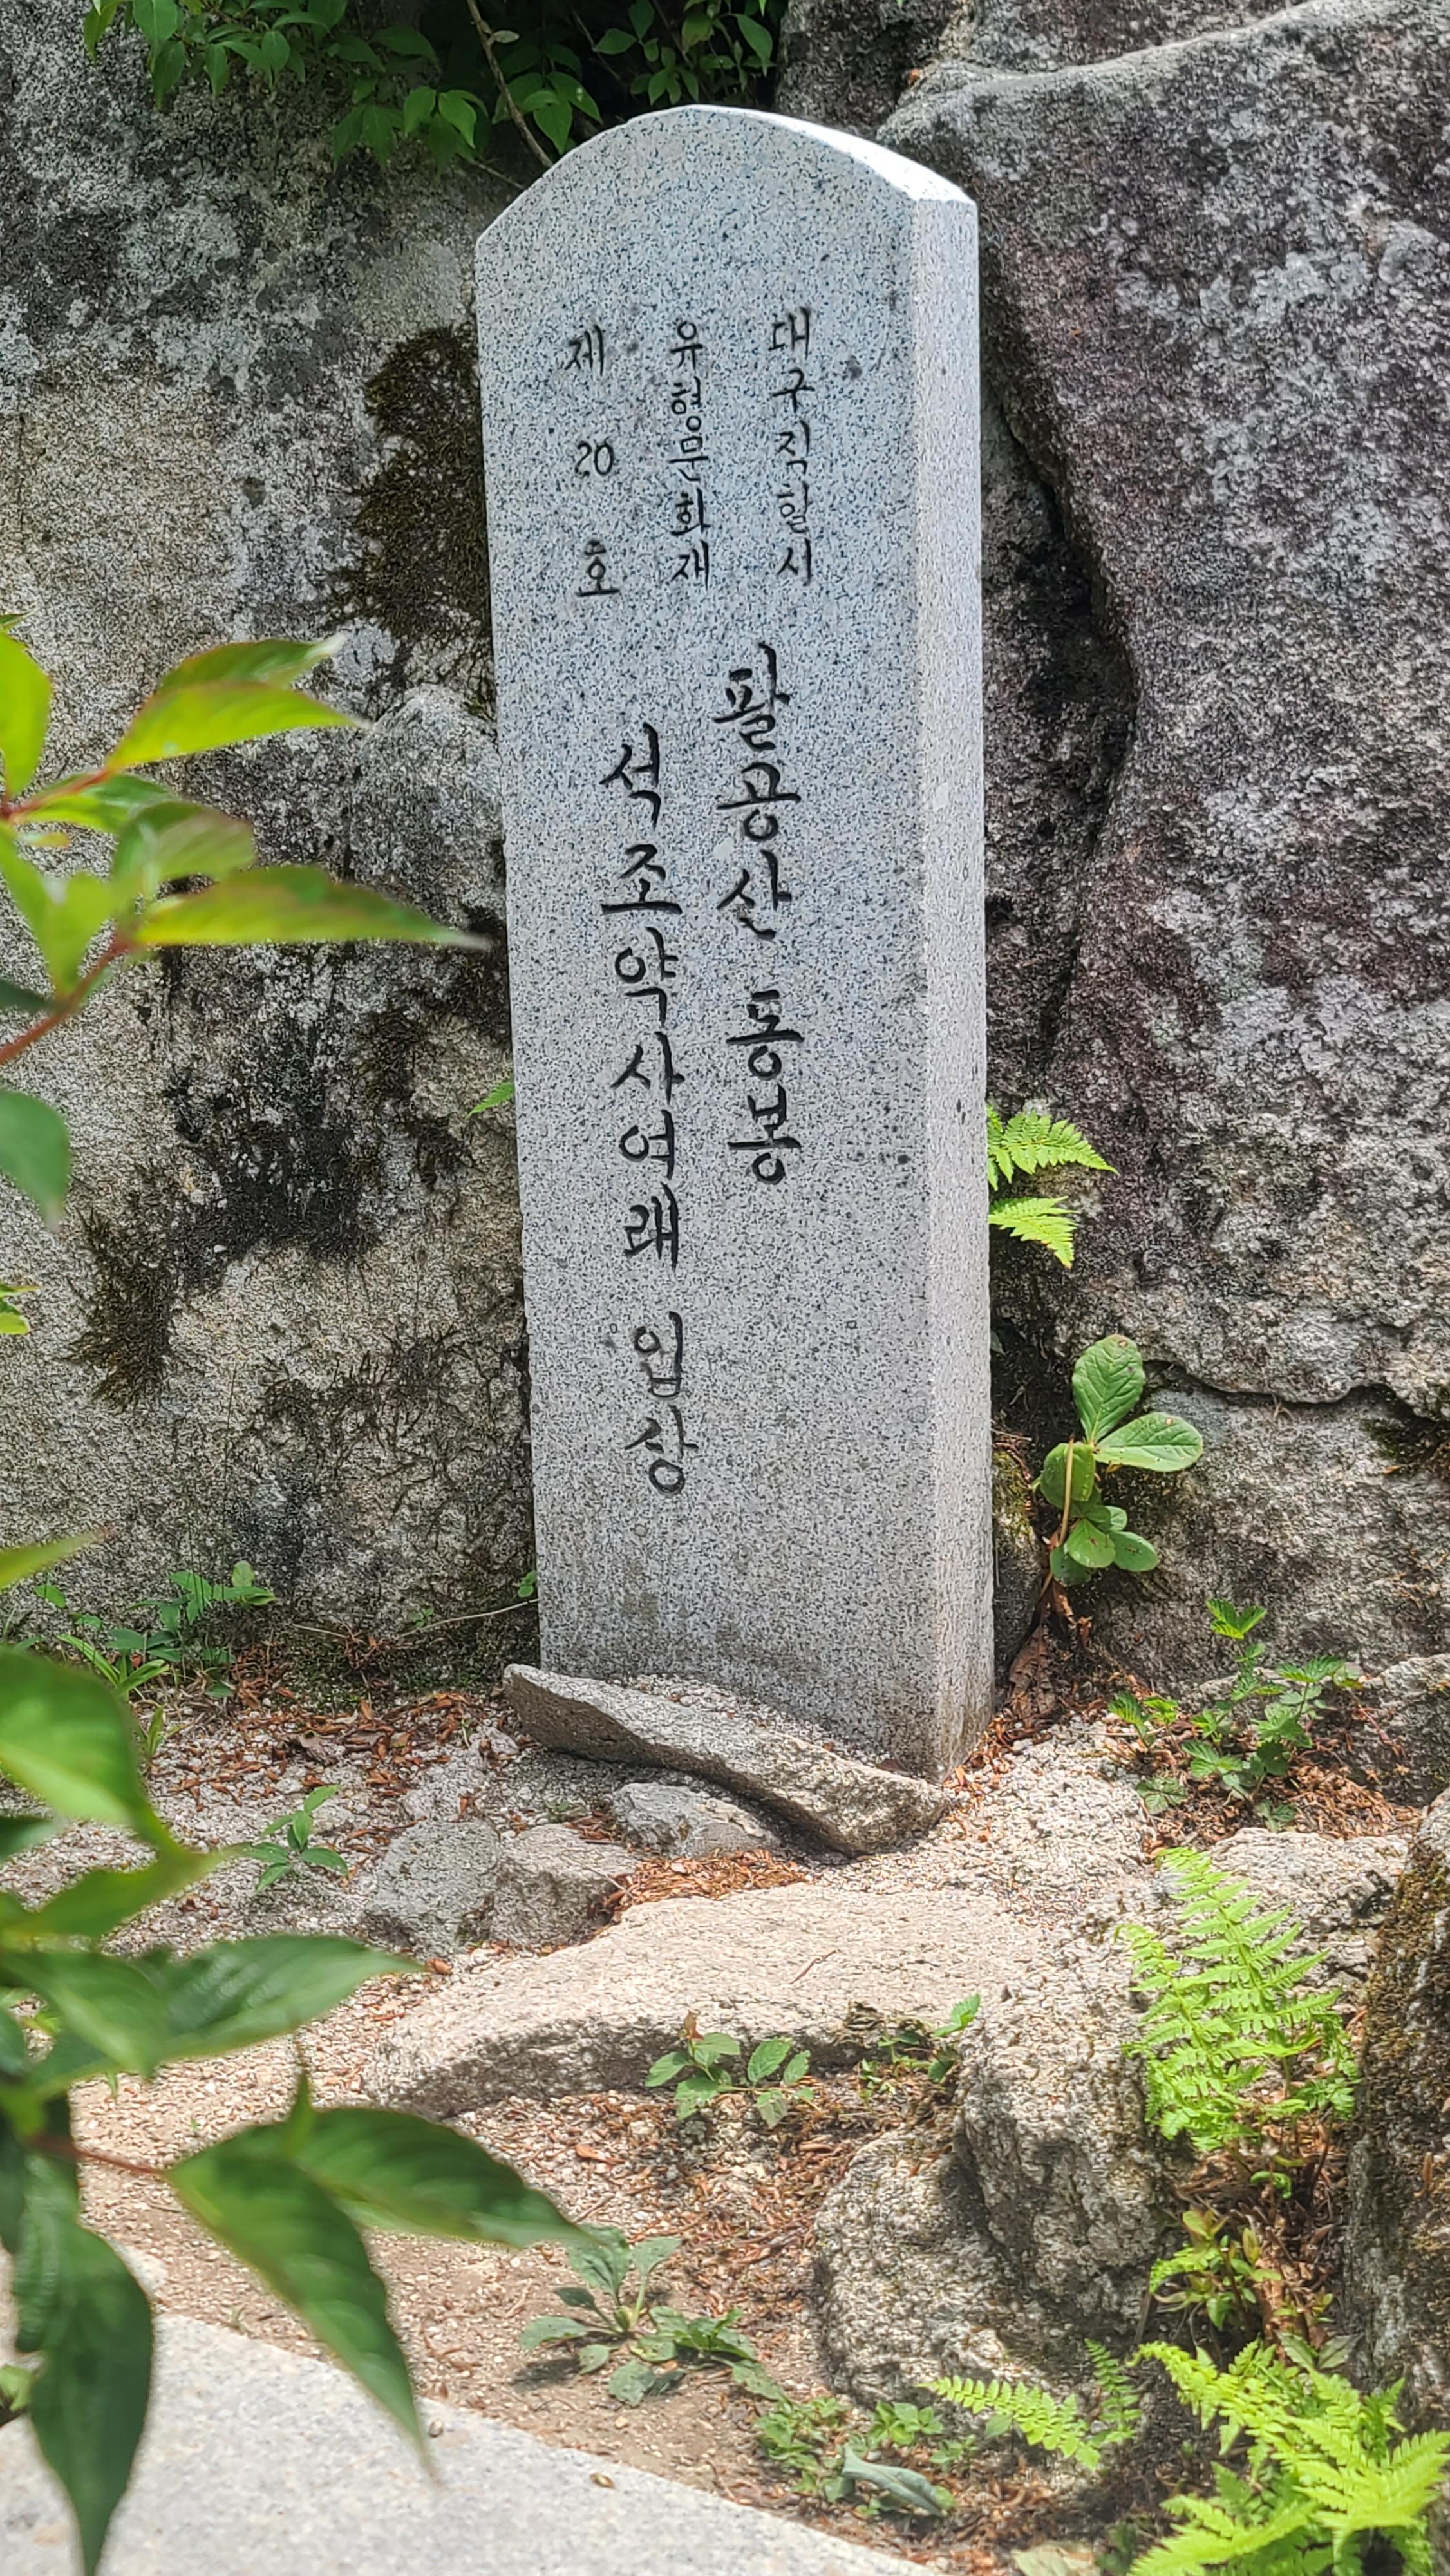 대구직할시
유형문화재
제 20 호
팔공산 동봉
석조약사여래 입상